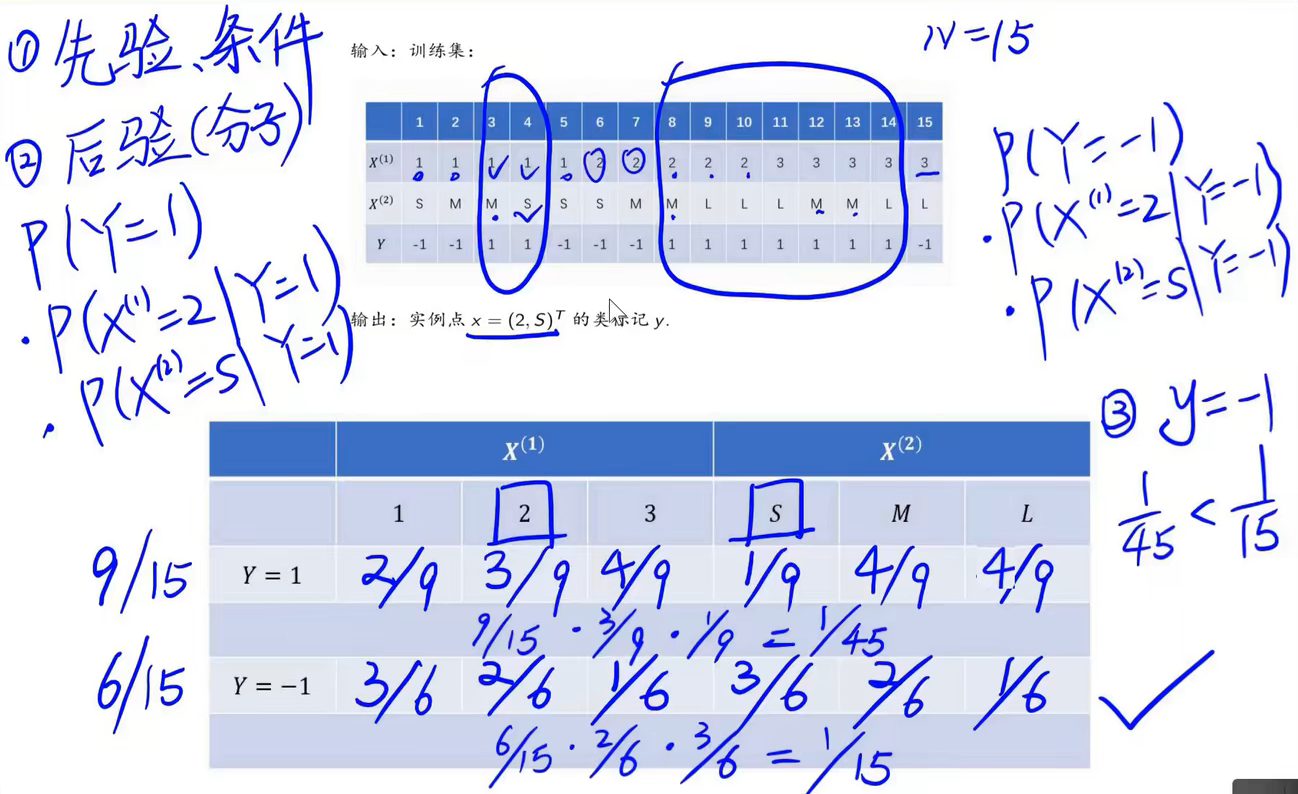 ① 先验、条件
② 后验(分子)
P(Y=1)
· P(X⁽¹⁾=2|Y=1)
· P(X⁽²⁾=S|Y=1)
输入: 训练集:
N=15
1 2 3 4 5 6 7 8 9 10 11 12 13 14 15
X⁽¹⁾ 1 1 1 1 1 2 2 2 2 2 3 3 3 3 3
X⁽²⁾ S M M S S S M M L L L M M L L
Y -1 -1 1 1 -1 -1 -1 1 1 1 1 1 1 1 -1
输出: 实例点 x = (2, S)ᵀ 的类标记 y.
P(Y=-1)
· P(X⁽¹⁾=2|Y=-1)
· P(X⁽²⁾=S|Y=-1)
③ y=-1
1/45 < 1/15
X⁽¹⁾ X⁽²⁾
1 2 3 S M L
9/15 Y = 1 2/9 3/9 4/9 1/9 4/9 4/9
9/15 · 3/9 · 1/9 = 1/45
6/15 Y = −1 3/6 2/6 1/6 3/6 2/6 1/6
6/15 · 2/6 · 3/6 = 1/15